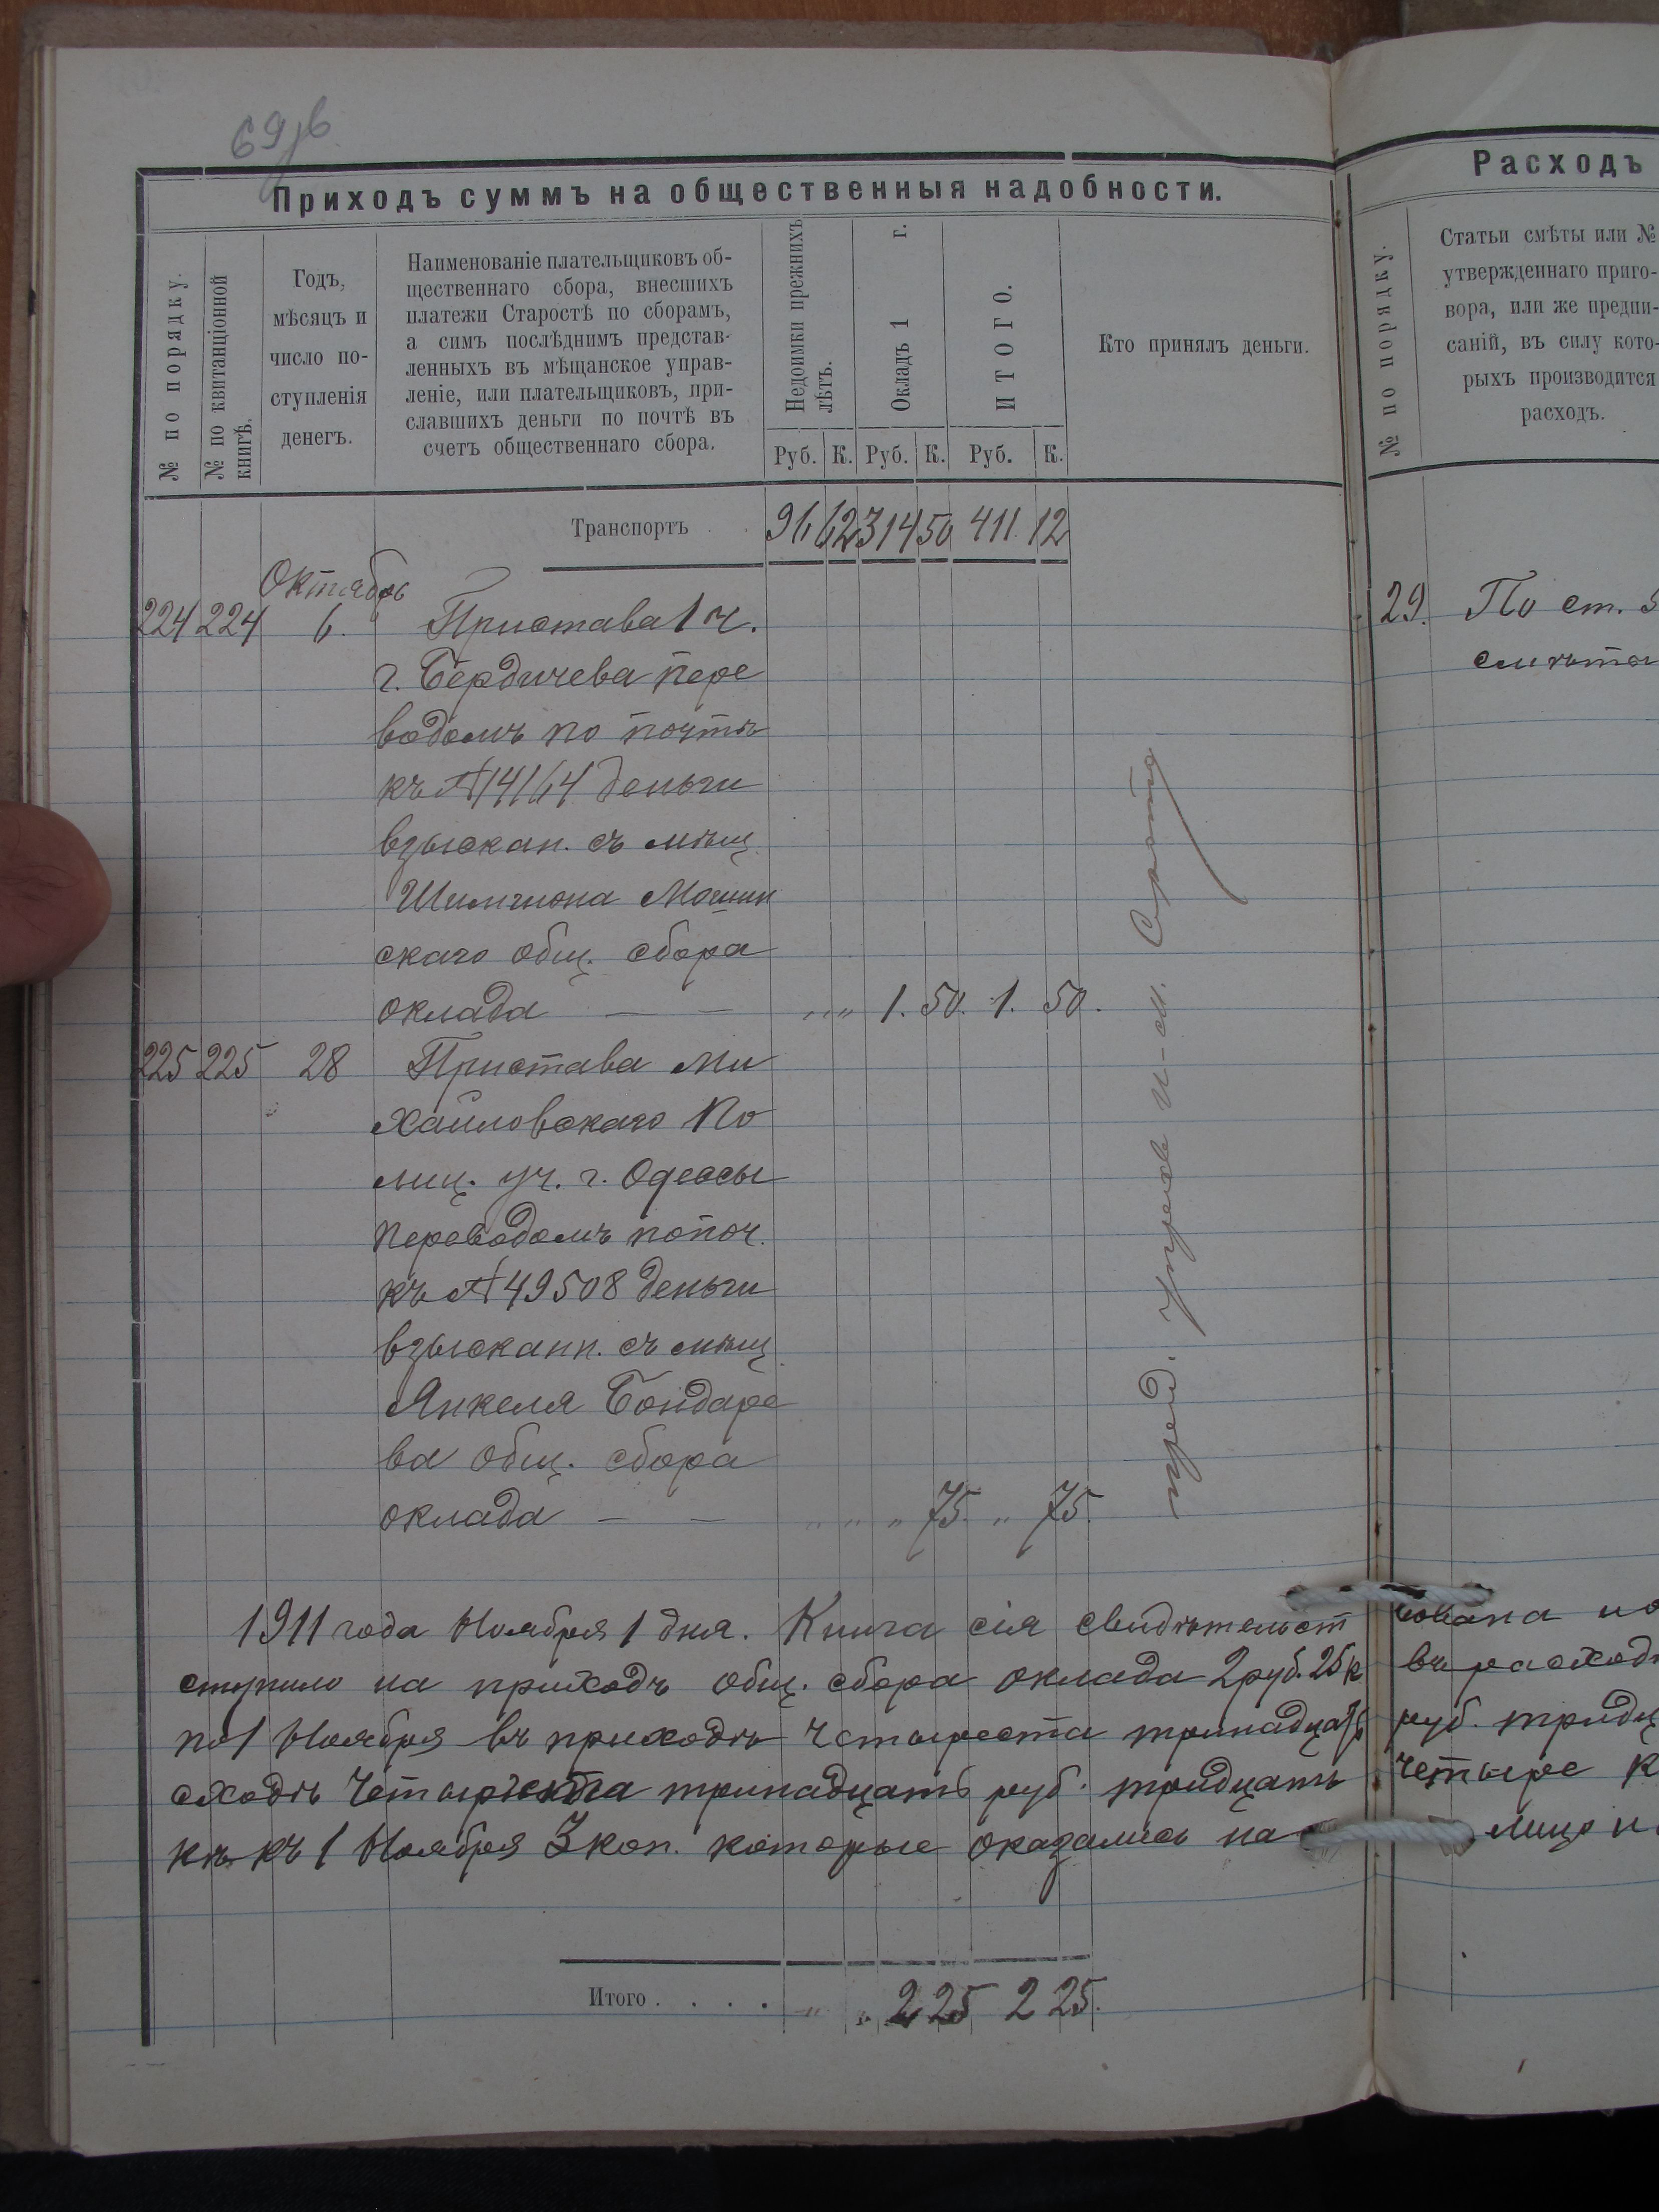 69 об
Приходъ суммъ на общественныя надобности.
№ по порядку.
№ по квитанціонной
книгѣ.
Годъ,
мѣсяцъ и
число по-
ступленія
денегъ.
Наименованіе плательщиковъ об-
щественнаго сбора, внесшихъ
платежи Старостѣ по сборамъ,
а симъ послѣднимъ представ-
ленныхъ въ мѣщанское управ-
леніе, или плательщиковъ, при-
славшихъ деньги по почтѣ въ
счетъ общественнаго сбора.
Недоимки прежнихъ
лѣтъ.
Окладъ 1 г.
ИТОГО.
Руб. К. Руб. К. Руб. К.
Кто принялъ деньги.
Транспортъ 96 62 314 50 411 12
Октябрь
224 224 6. Пристава 1 ч.
г. Бердичева пере
водомъ по почтѣ
къ № 14164 деньги
взыскан. съ мѣщ.
скаго общ. сбора
оклада — — „ „ 1. 50. 1. 50.
225 225 28 Пристава Ми
хайловскаго По
лиц. уч. г. Одессы
переводомъ по поч.
къ № 49508 деньги
взысканн. съ мѣщ.
Янкеля Бондаре
ва общ. сбора
оклада — — „ „ „ 75. „ 75.
1911 года Ноября 1 дня. Книга сія свидѣтельст
ступило на приходъ общ. сбора оклада 2 руб. 25 к
по 1 Ноября въ приходѣ четыреста тринадцать
сходѣ четыреста тринадцать руб. тридцать
къ 1 Ноября 3 коп. которые оказались на
Итого . . . . „ „ 2 25 2 25.
Расходъ
№ по порядку.
Статьи смѣты или №
утвержденнаго приго-
вора, или же предпи-
саній, въ силу кото-
рыхъ производится
расходъ.
29. По ст. 5
смѣты
вована по
въ расходъ
руб. тридц
четыре к
лицо и